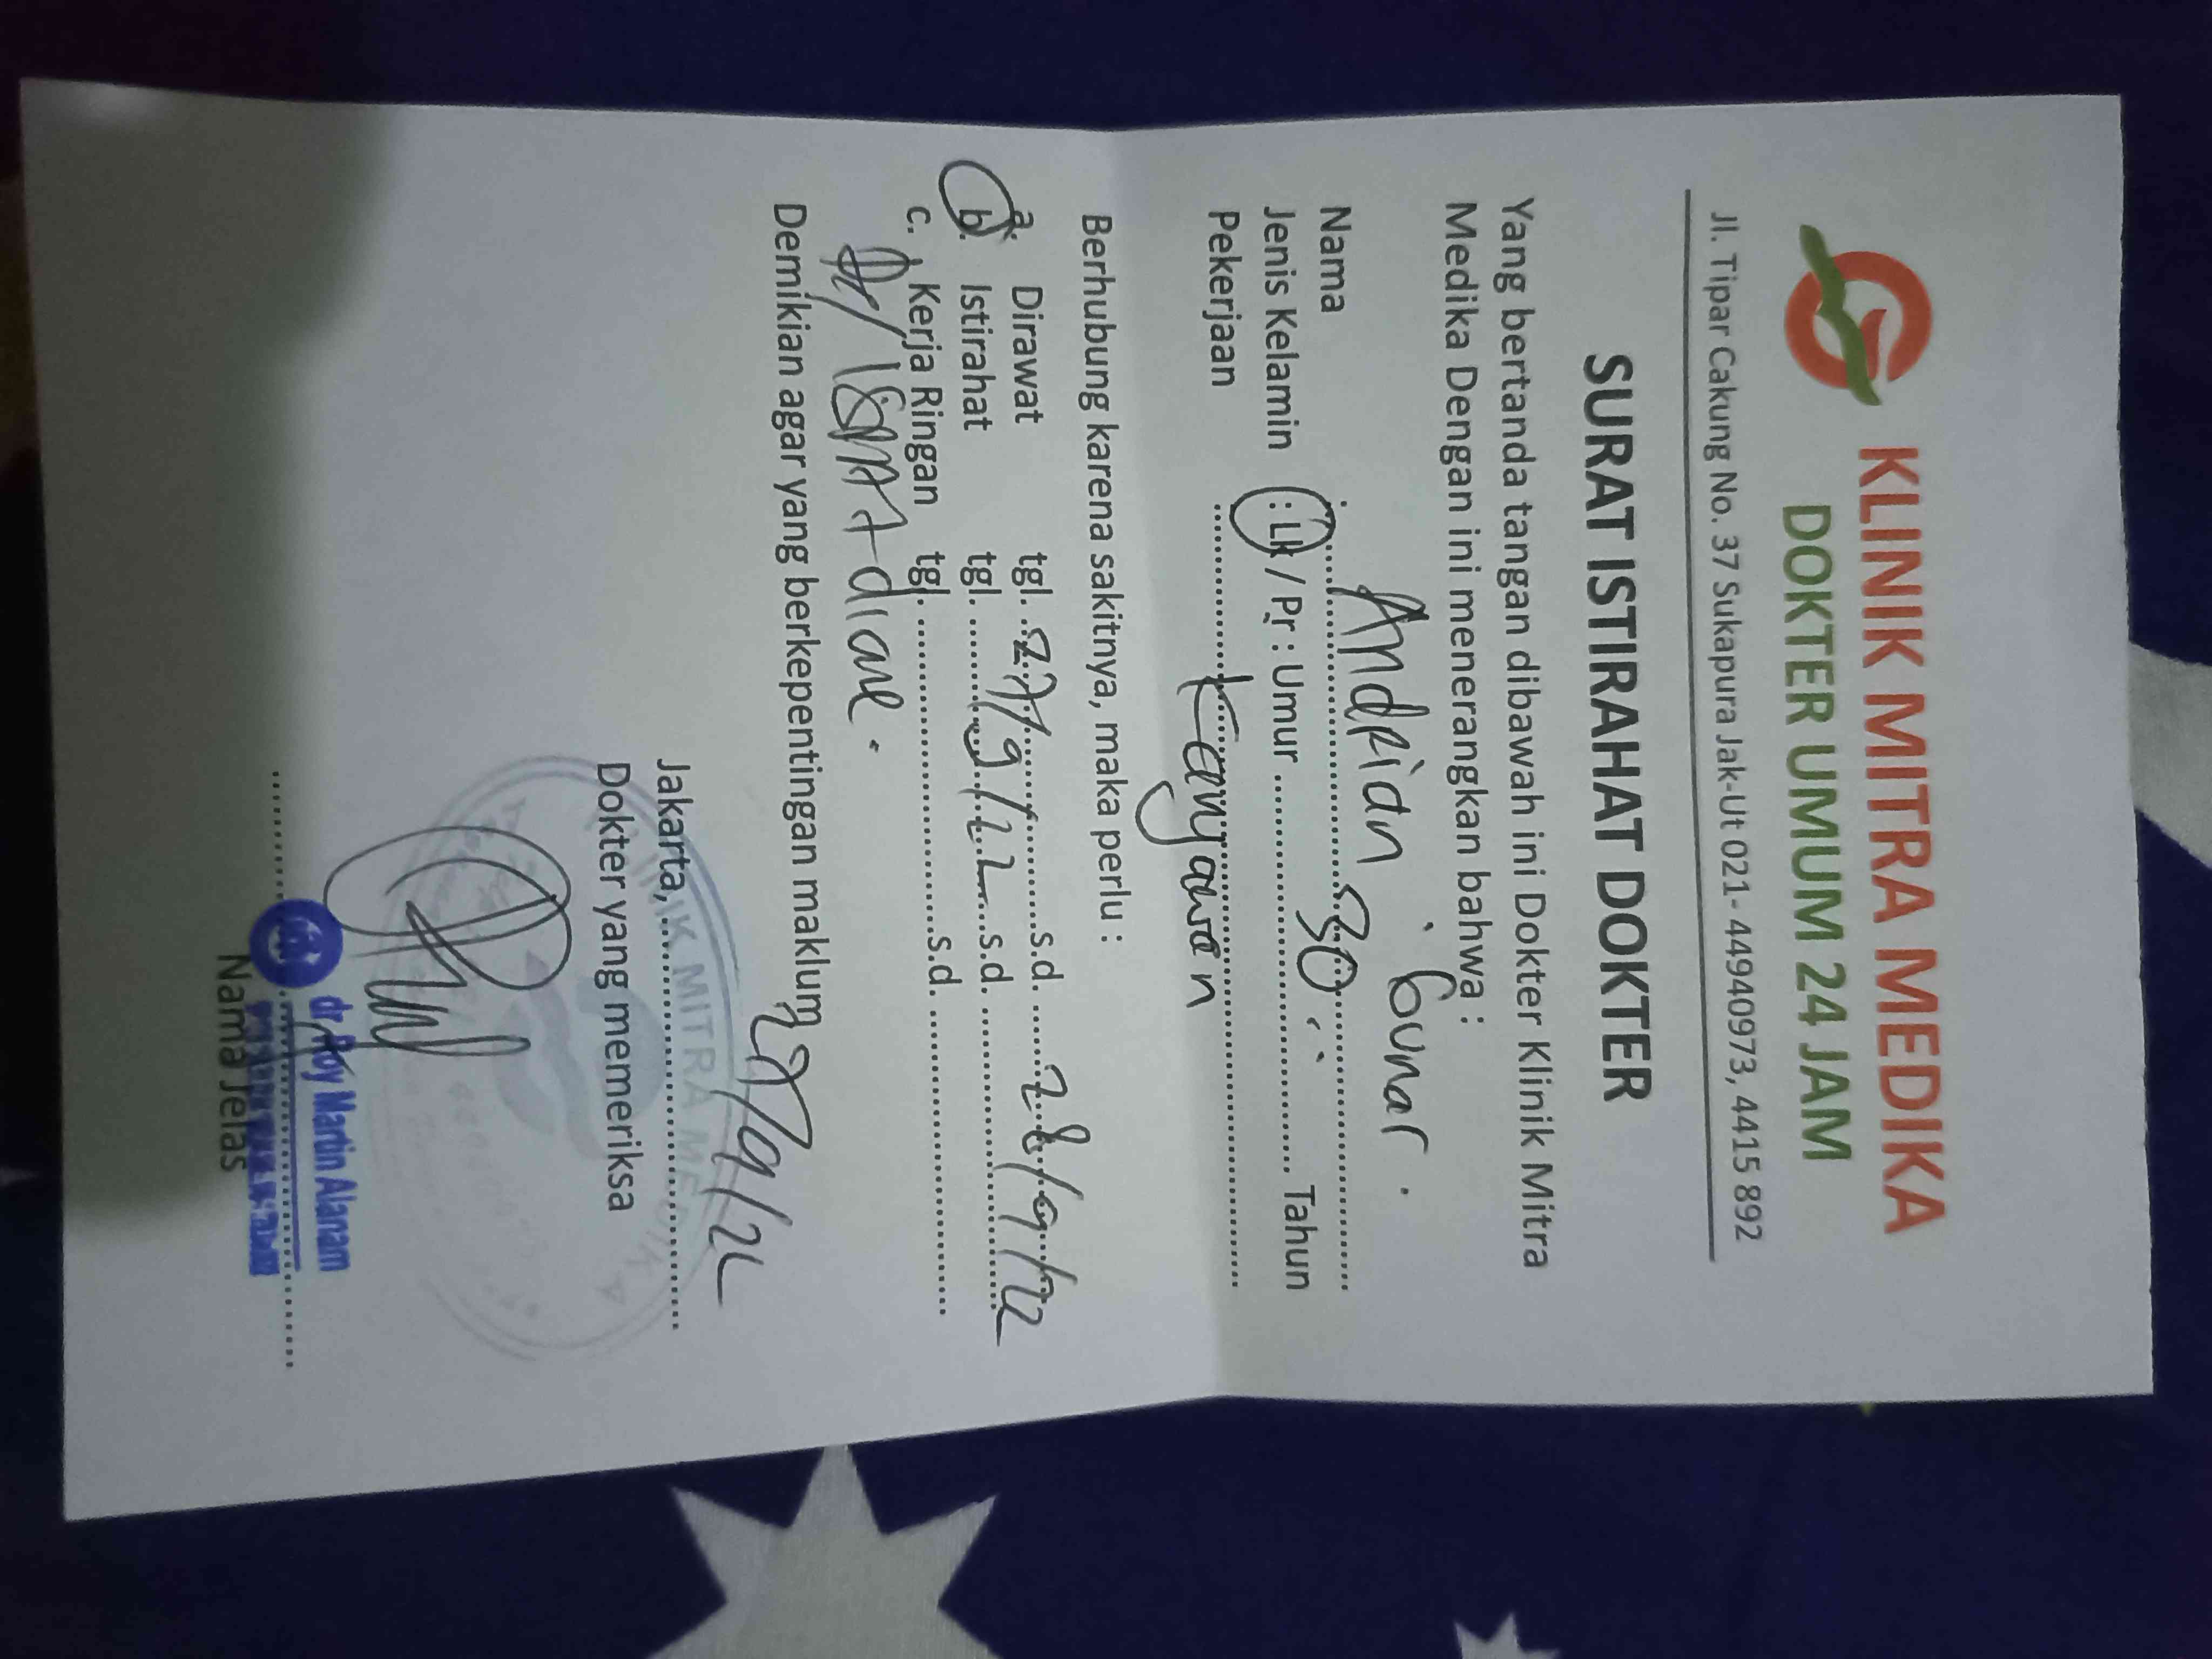 KLINIK MITRA MEDIKA
DOKTER UMUM 24 JAM
Jl. Tipar Cakung No. 37 Sukapura Jak-Ut 021- 44940973, 4415 892
SURAT ISTIRAHAT DOKTER
Yang bertanda tangan dibawah ini Dokter Klinik Mitra
Medika Dengan ini menerangkan bahwa :
Nama : Andrian Gunar.
Jenis Kelamin : Lk / Pr : Umur 30 Tahun
Pekerjaan Karyawan
Berhubung karena sakitnya, maka perlu :
a. Dirawat tgl. 27/9/22 s.d. 28/9/22
b. Istirahat tgl. s.d.
c. Kerja Ringan tgl. s.d.
diare.
Demikian agar yang berkepentingan maklum
Jakarta, 27/9/22
Dokter yang memeriksa
KLINIK MITRA MEDIKA
dr Roy Martin Alanam
Nama Jelas